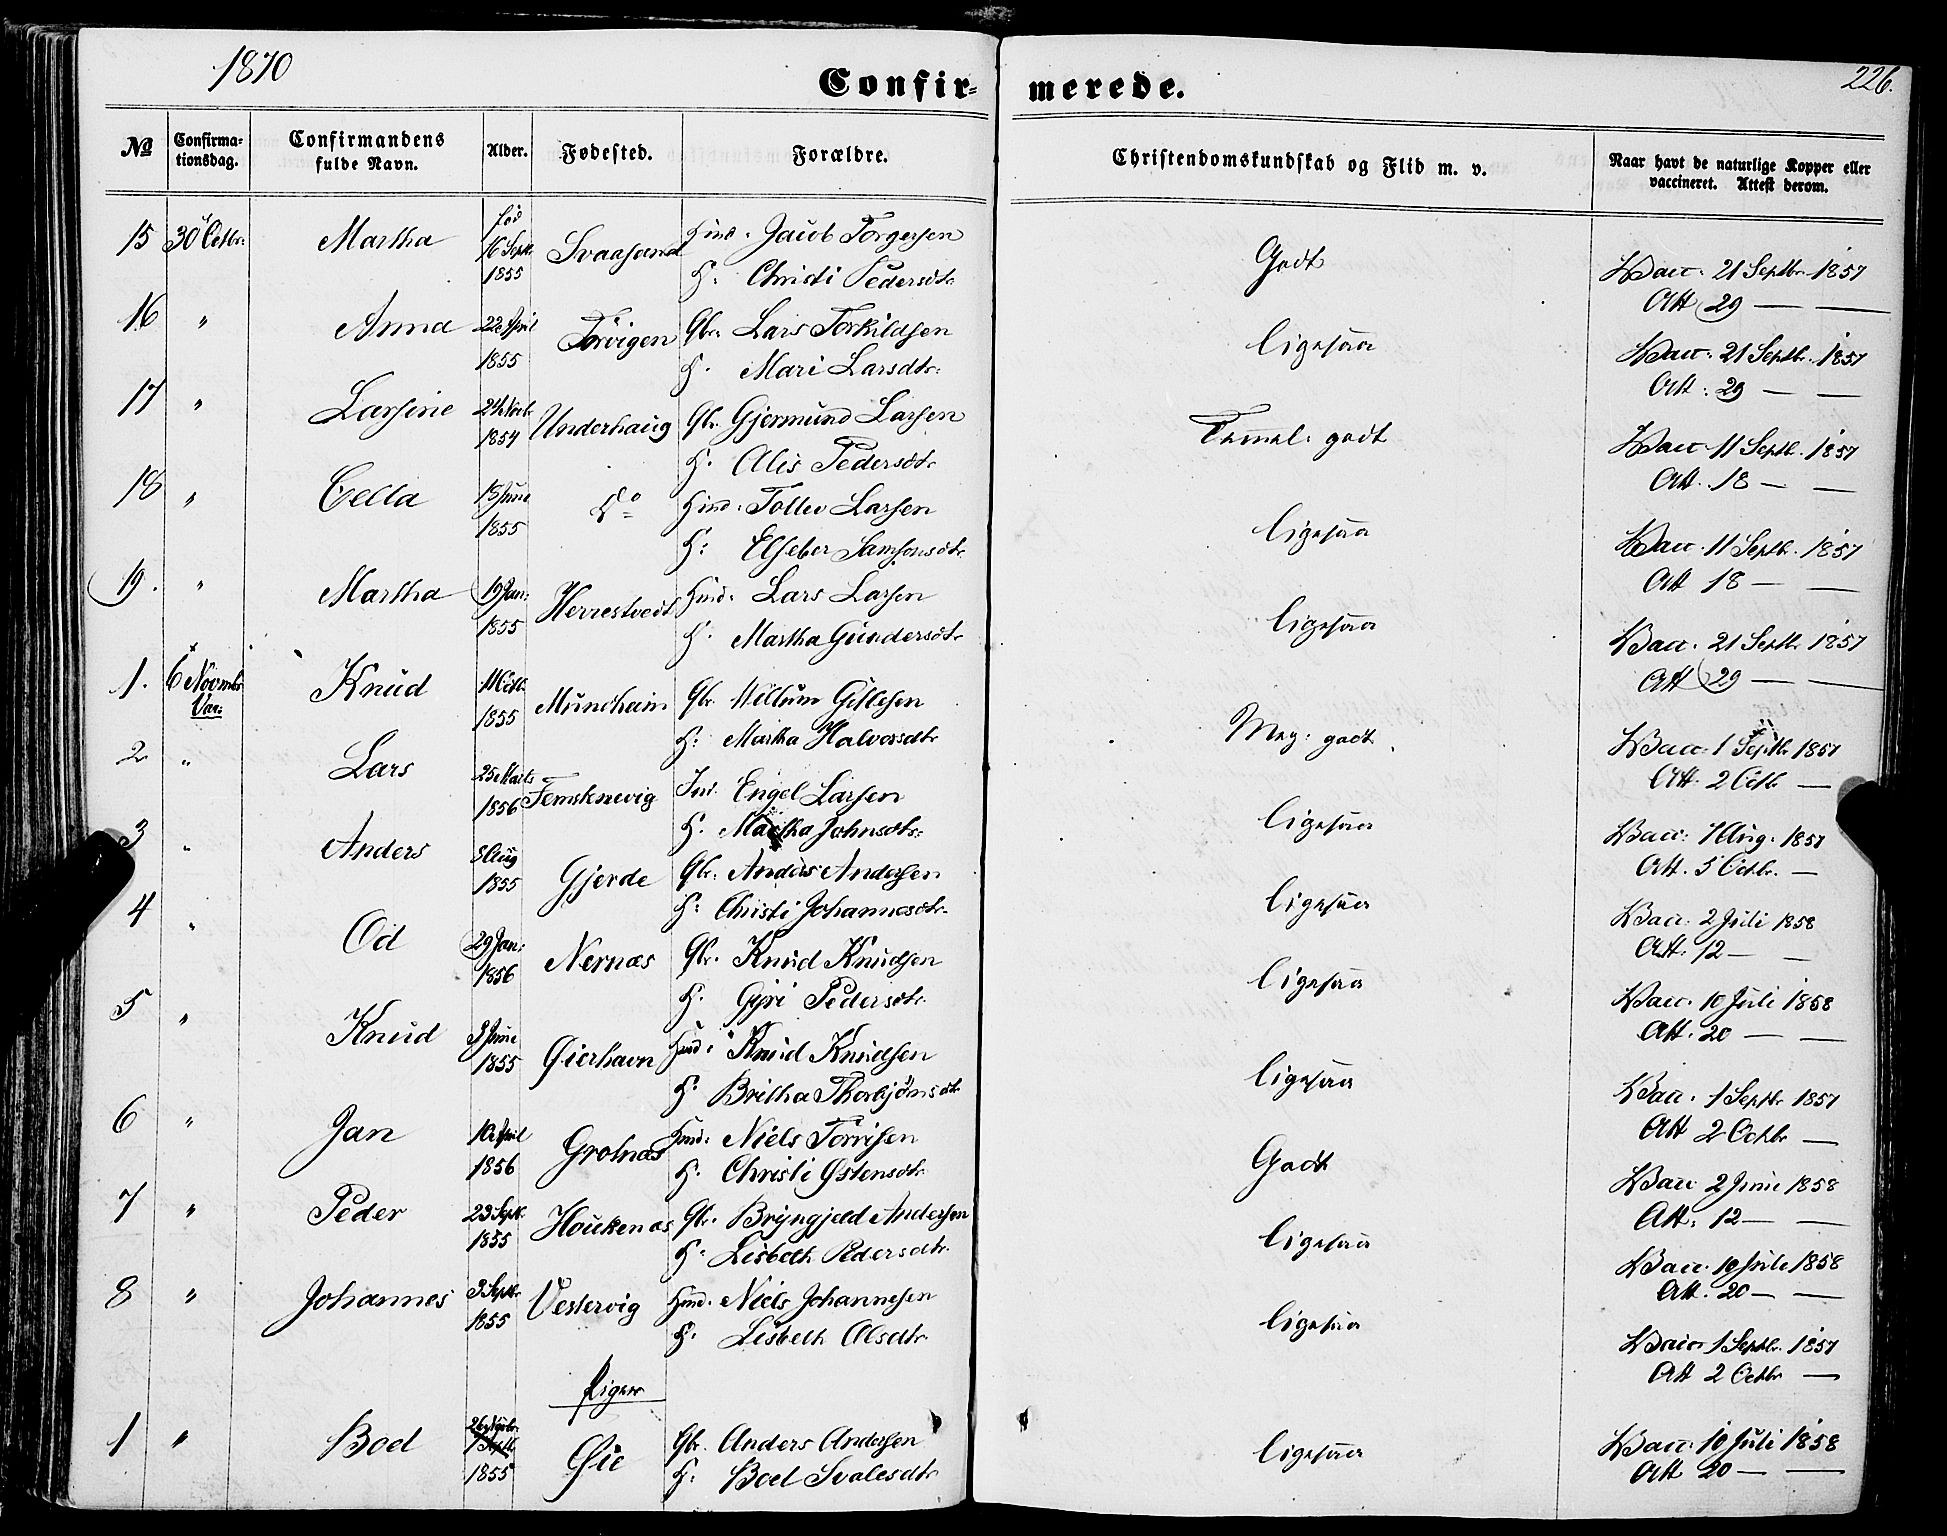 1870
Confir-merede.
226.
No Confirmationsdag. Confirmandens fulde Navn. Alder. Fødested. Forældre. Christendomskundskab og Flid m. v. Naar havt de naturlige Kopper eller vaccineret. Attest derom.
15 30 Octbr: Martha fød 16 Septr 1855 Svaasand Huusd: Jacob Torgersen Godt Vacc: 21 Septbr 1857
H: Christi Pedersdtr Att 29 — —
16 " Anna 22 April 1855 Torvigen Gbr: Lars Torkildsen ligesaa Vacc: 21 Septbr. 1857
H. Mari Larsdtr: Att: 29 — —
17 " Larsine 24 Novbr 1854 Underhaug Gbr. Gjermund Larsen Temmel: godt Vacc. 11 Septbr. 1857
H. Alis Pedersdtr Att. 18 — —
18 " Cella 15 Juni 1855 Do Huusd: Tollev Larsen ligesaa Vacc. 11 Septbr. 1857
H: Elseber Samsonsdtr Att 18 — —
19. " Martha 19 Jan: 1855 Herrestvedt Huusd: Lars Larsen ligesaa Vacc. 21 Septbr 1857
H. Martha Gundersdtr Att 29 — —
1. 6 Novmbr Var: Knud 1855 Mundheim Gbr. Willum Gitlesen Meg: godt Vacc: 1 Septbr 1857
H: Martha Halvorsdtr Att. 2 Octbr —
2 " Lars 25 Marts 1856 Femsknevig Ins. Engel Larsen ligesaa Vacc: 7 Aug. 1857
H. Martha Johnsdtr: Att. 5 Octbr. —
3 " Anders 5 Aug 1855 Gjerde Gbr: Anders Andersen ligesaa Vacc: 2 Juli 1858
H: Christi Johannesdtr. Att. 12 — —
4 " Od 29 Jan: 1856 Nernæs Gbr. Knud Knudsen ligesaa Vacc. 10 Juli 1858
H. Gyri Pedersdtr. Att. 20 — —
5 " Knud 3 Juni 1855 Øierhavn Huusd: Knud Knudsen ligesaa Vacc. 1 Septbr 1857
H. Britha Thorbjørnsdtr Att 2 Octbr —
6 " Jan 10 April 1856 Grotnæs Huusd: Niels Torrisen Godt Vacc 2 Juni 1858
H. Christi Østensdtr Att: 12 — —
7 " Peder 23 Septr. 1855 Houkenæs Gbr. Bryngjeld Andersen ligesaa Vacc. 10 Juli 1858
H. Lisbeth Pedersdtr. Att. 20 — —
8 " Johannes 3 Septbr 1855 Vestervig Huusd. Niels Johannesen ligesaa Vacc. 1 Septbr. 1857
H. Lisbeth Olsdtr Att 2 Octbr —
Piger
1 " Boel 26 Novbr. 1855 Øie Gbr. Anders Andersen ligesaa Vacc: 10 Juli 1858
H: Boel Svalesdtr Att 20 — —